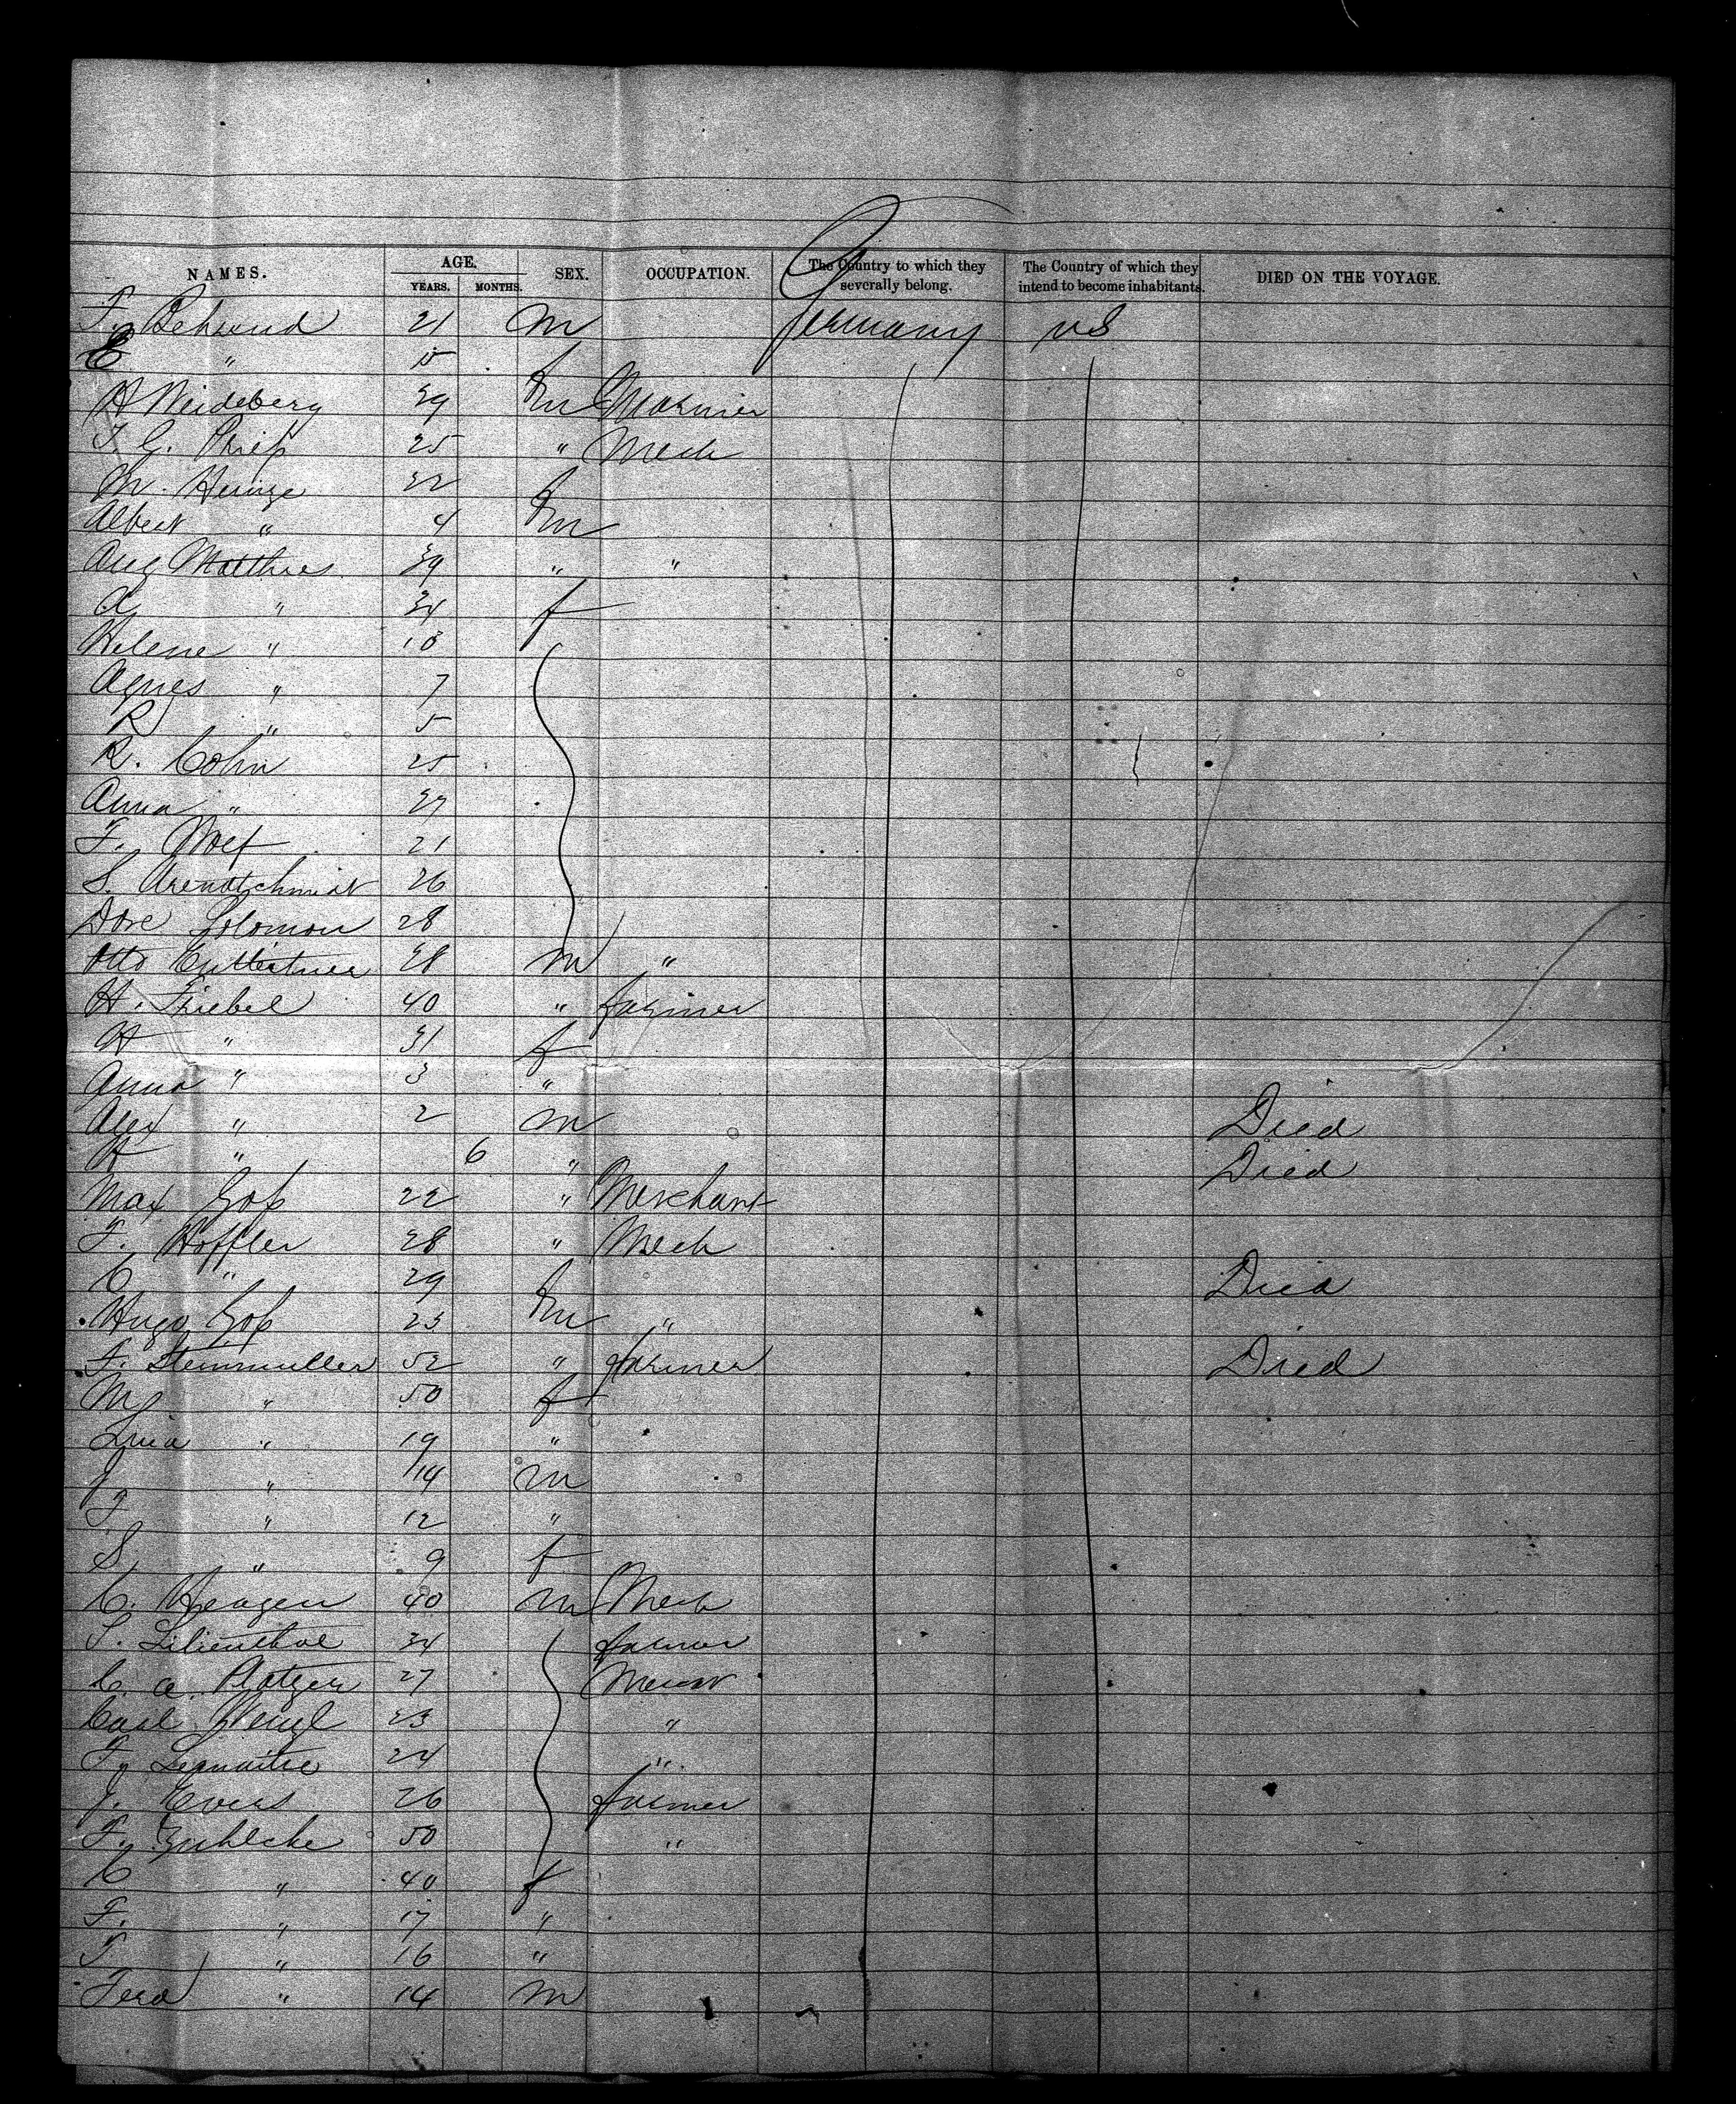 NAMES. AGE. SEX. OCCUPATION. The Country to which they severally belong. The Country of which they intend to become inhabitants. DIED ON THE VOYAGE.
YEARS. MONTHS.
F. Behrend 21 m Germany US
E " f
A Weideberg 39 m
T. G. 25 " Mech
M. Heinze 22 f
Albert " 4 m
Aug Matthies 39 " "
A " 34 f
Helene " 10
Agnes " 7
R " 5
R. Cohn 25
Anna " 27
F. 21
S. Arendtschmidt 26
Dore Solomon 28
Otto 28 m "
H. Friebel 40 " farmer
H " 31 f
Anna " 3 "
Alex " 2 m Died
H " 6 " Died
Max 22 " Merchant
F. Hoffler 28 " Mech
C " 29 f Died
Hugo 23 m "
F. Steinmuller 52 " farmer Died
M " 50 f
Lina " 19 "
J " 14 m
F " 12 "
S. " 9 f
C. Heagen 40 m Mech
S. Lilienthal 34 farmer
C. a. Platzen 27
Carl 23 "
F. Lemaitre 24 "
J. Evers 26 farmer
F. Zuhlcke 50 "
C " 40 f
F. " 17 "
T " 16 "
Ferd " 14 m